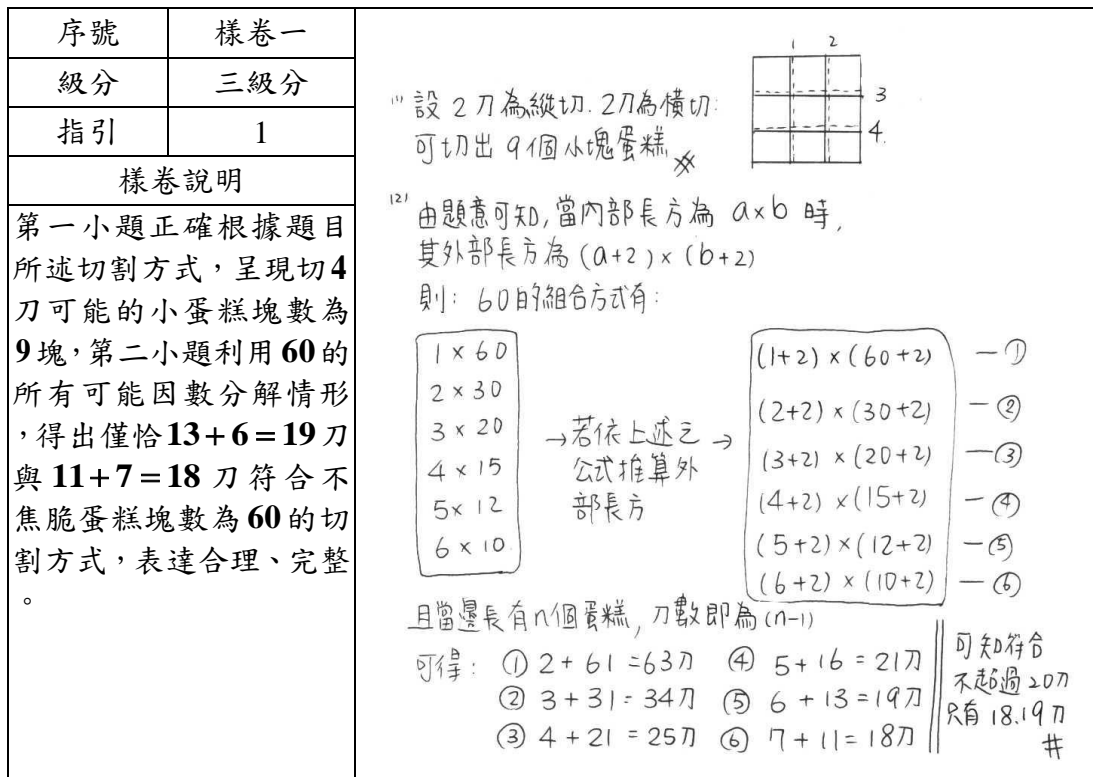 序號 樣卷一
級分 三級分
指引 1
樣卷說明
第一小題正確根據題目
所述切割方式，呈現切4
刀可能的小蛋糕塊數為
9塊，第二小題利用60的
所有可能因數分解情形
，得出僅恰13+6=19刀
與11+7=18刀符合不
焦脆蛋糕塊數為60的切
割方式，表達合理、完整
。
1 2
3
4.
(1) 設2刀為縱切.2刀為橫切:
可切出9個小塊蛋糕
(2) 由題意可知,當內部長方為 a×b 時,
其外部長方為 (a+2)×(b+2)
則: 60的組合方式有:
1×60
2×30
3×20
4×15
5×12
6×10
→若依上述之→
公式推算外
部長方
(1+2)×(60+2) —①
(2+2)×(30+2) —②
(3+2)×(20+2) —③
(4+2)×(15+2) —④
(5+2)×(12+2) —⑤
(6+2)×(10+2) —⑥
且當邊長有n個蛋糕,刀數即為(n-1)
可得: ① 2+61=63刀 ④ 5+16=21刀
② 3+31=34刀 ⑤ 6+13=19刀
③ 4+21=25刀 ⑥ 7+11=18刀
可知符合
不超過20刀
只有18.19刀
#